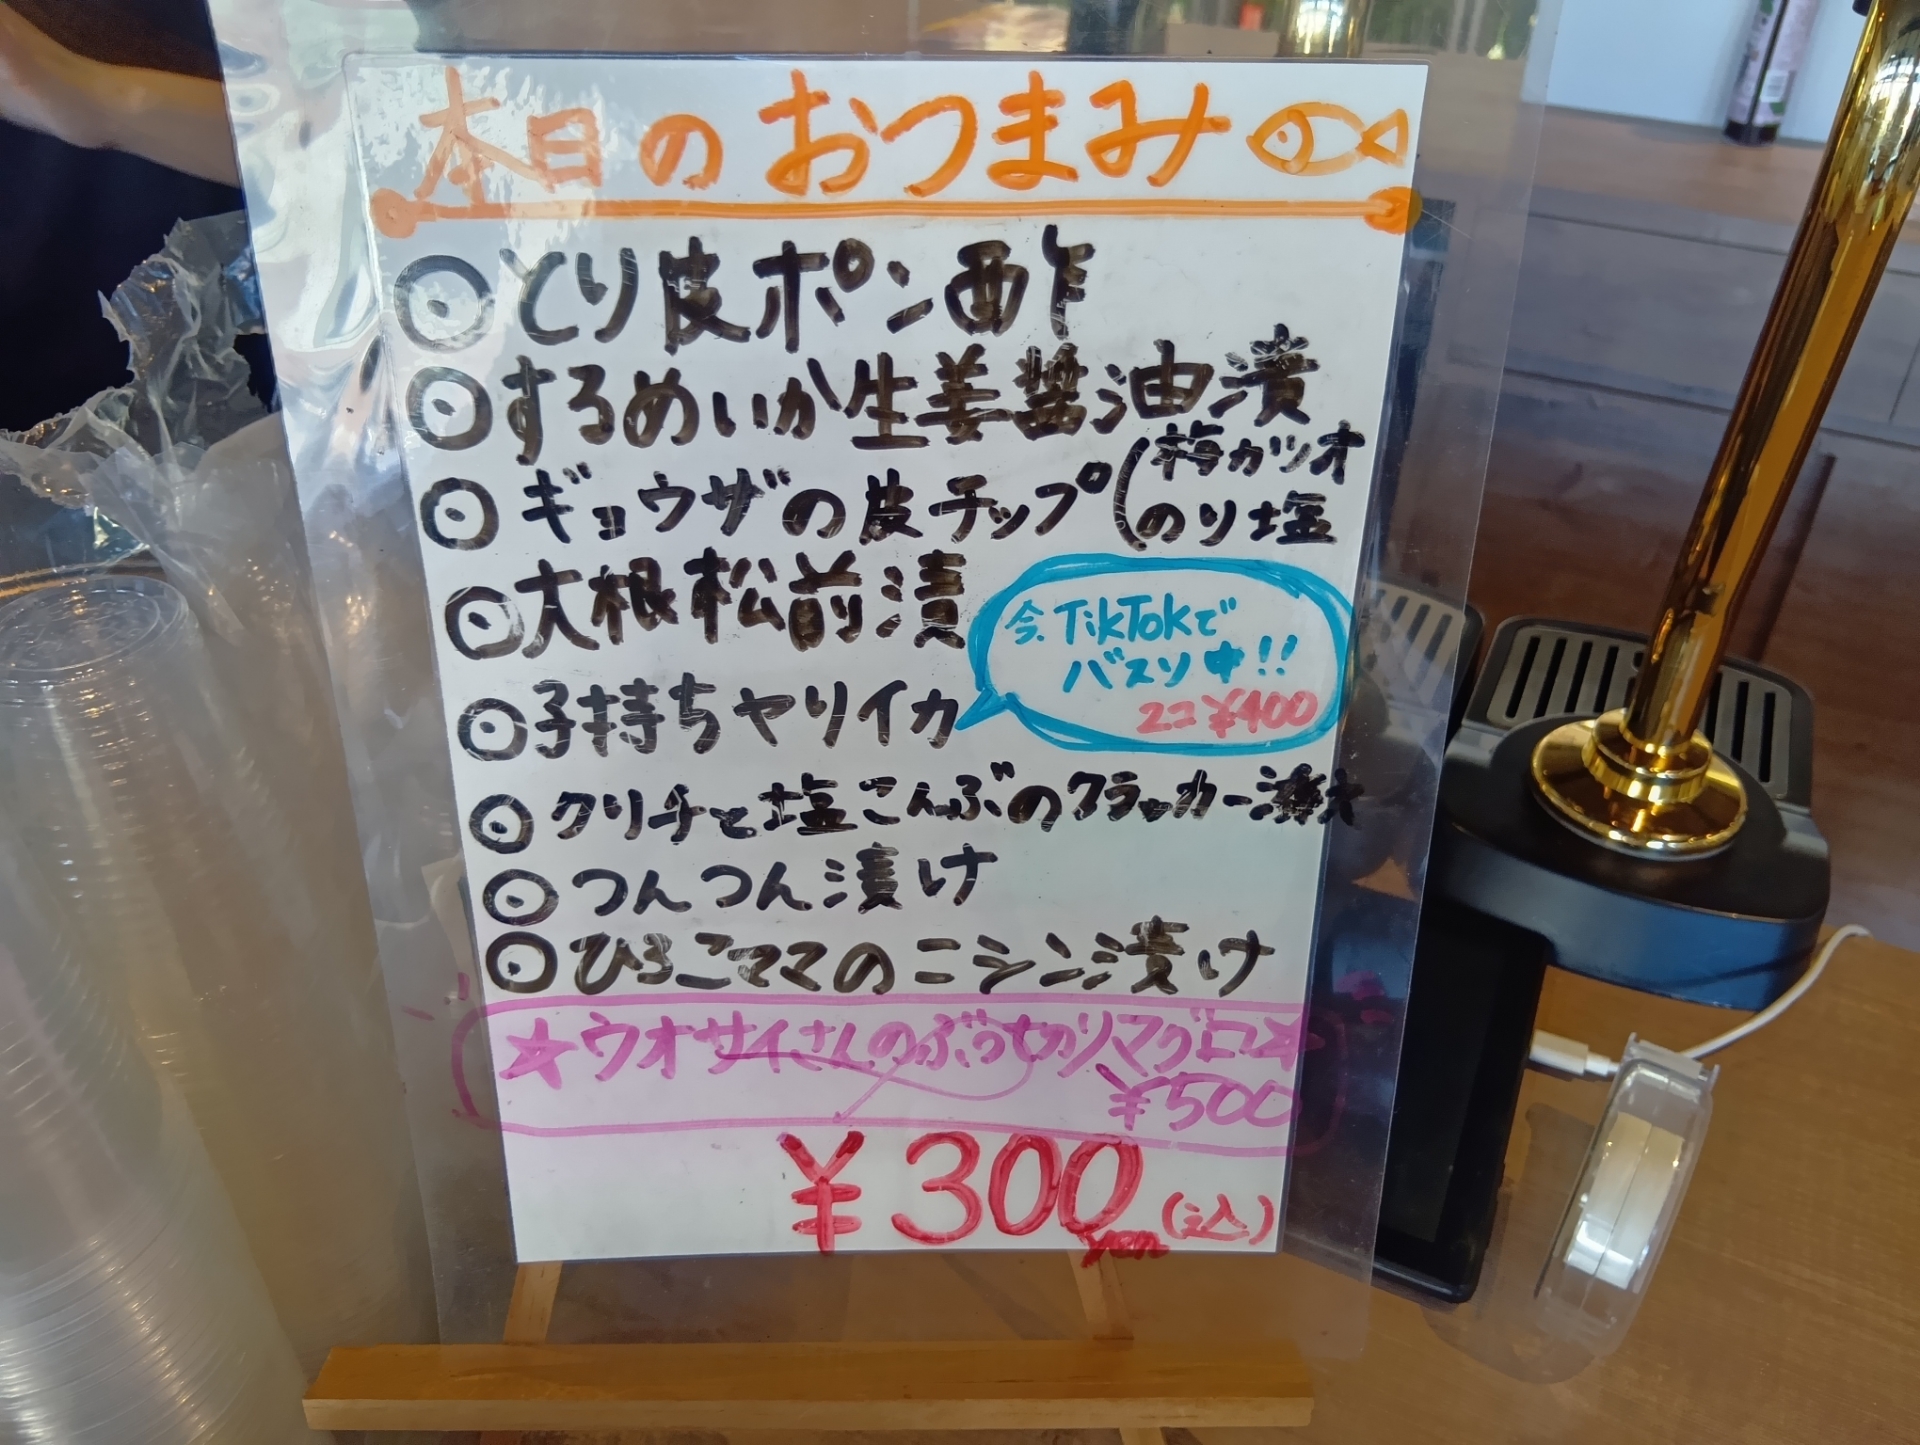 本日のおつまみ
とり皮ポン酢
するめいか生姜醤油漬
ギョウザの皮チップ(梅カツオ
のり塩
大根松前漬
今、TikTokで
バズり中!!
2コ ¥400
子持ちヤリイカ
クリチと塩こんぶのクラッカー添え
つんつん漬け
ひろこママのニシン漬け
☆ウオサイさんのぶつ切りマグロ☆
¥500
¥300yen(込)